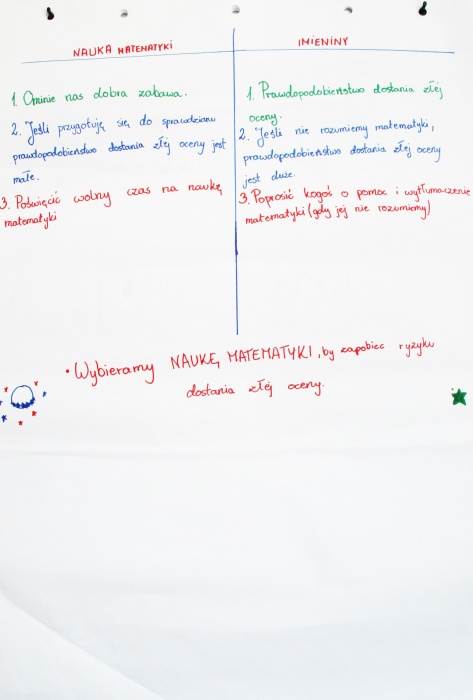 NAUKA MATEMATYKI
1. Ominie nas dobra zabawa.
2. Jeśli przygotuję się do sprawdzianu
prawdopodobieństwo dostania złej oceny jest
małe.
3. Poświęcić wolny czas na naukę
matematyki
IMIENINY
1. Prawdopodobieństwo dostania złej
oceny.
2. Jeśli nie rozumiemy matematyki,
prawdopodobieństwo dostania złej oceny
jest duże.
3. Poprosić kogoś o pomoc i wytłumaczenie
matematyki (gdy jej nie rozumiemy)
• Wybieramy NAUKĘ MATEMATYKI, by zapobiec ryzyku
dostania złej oceny.